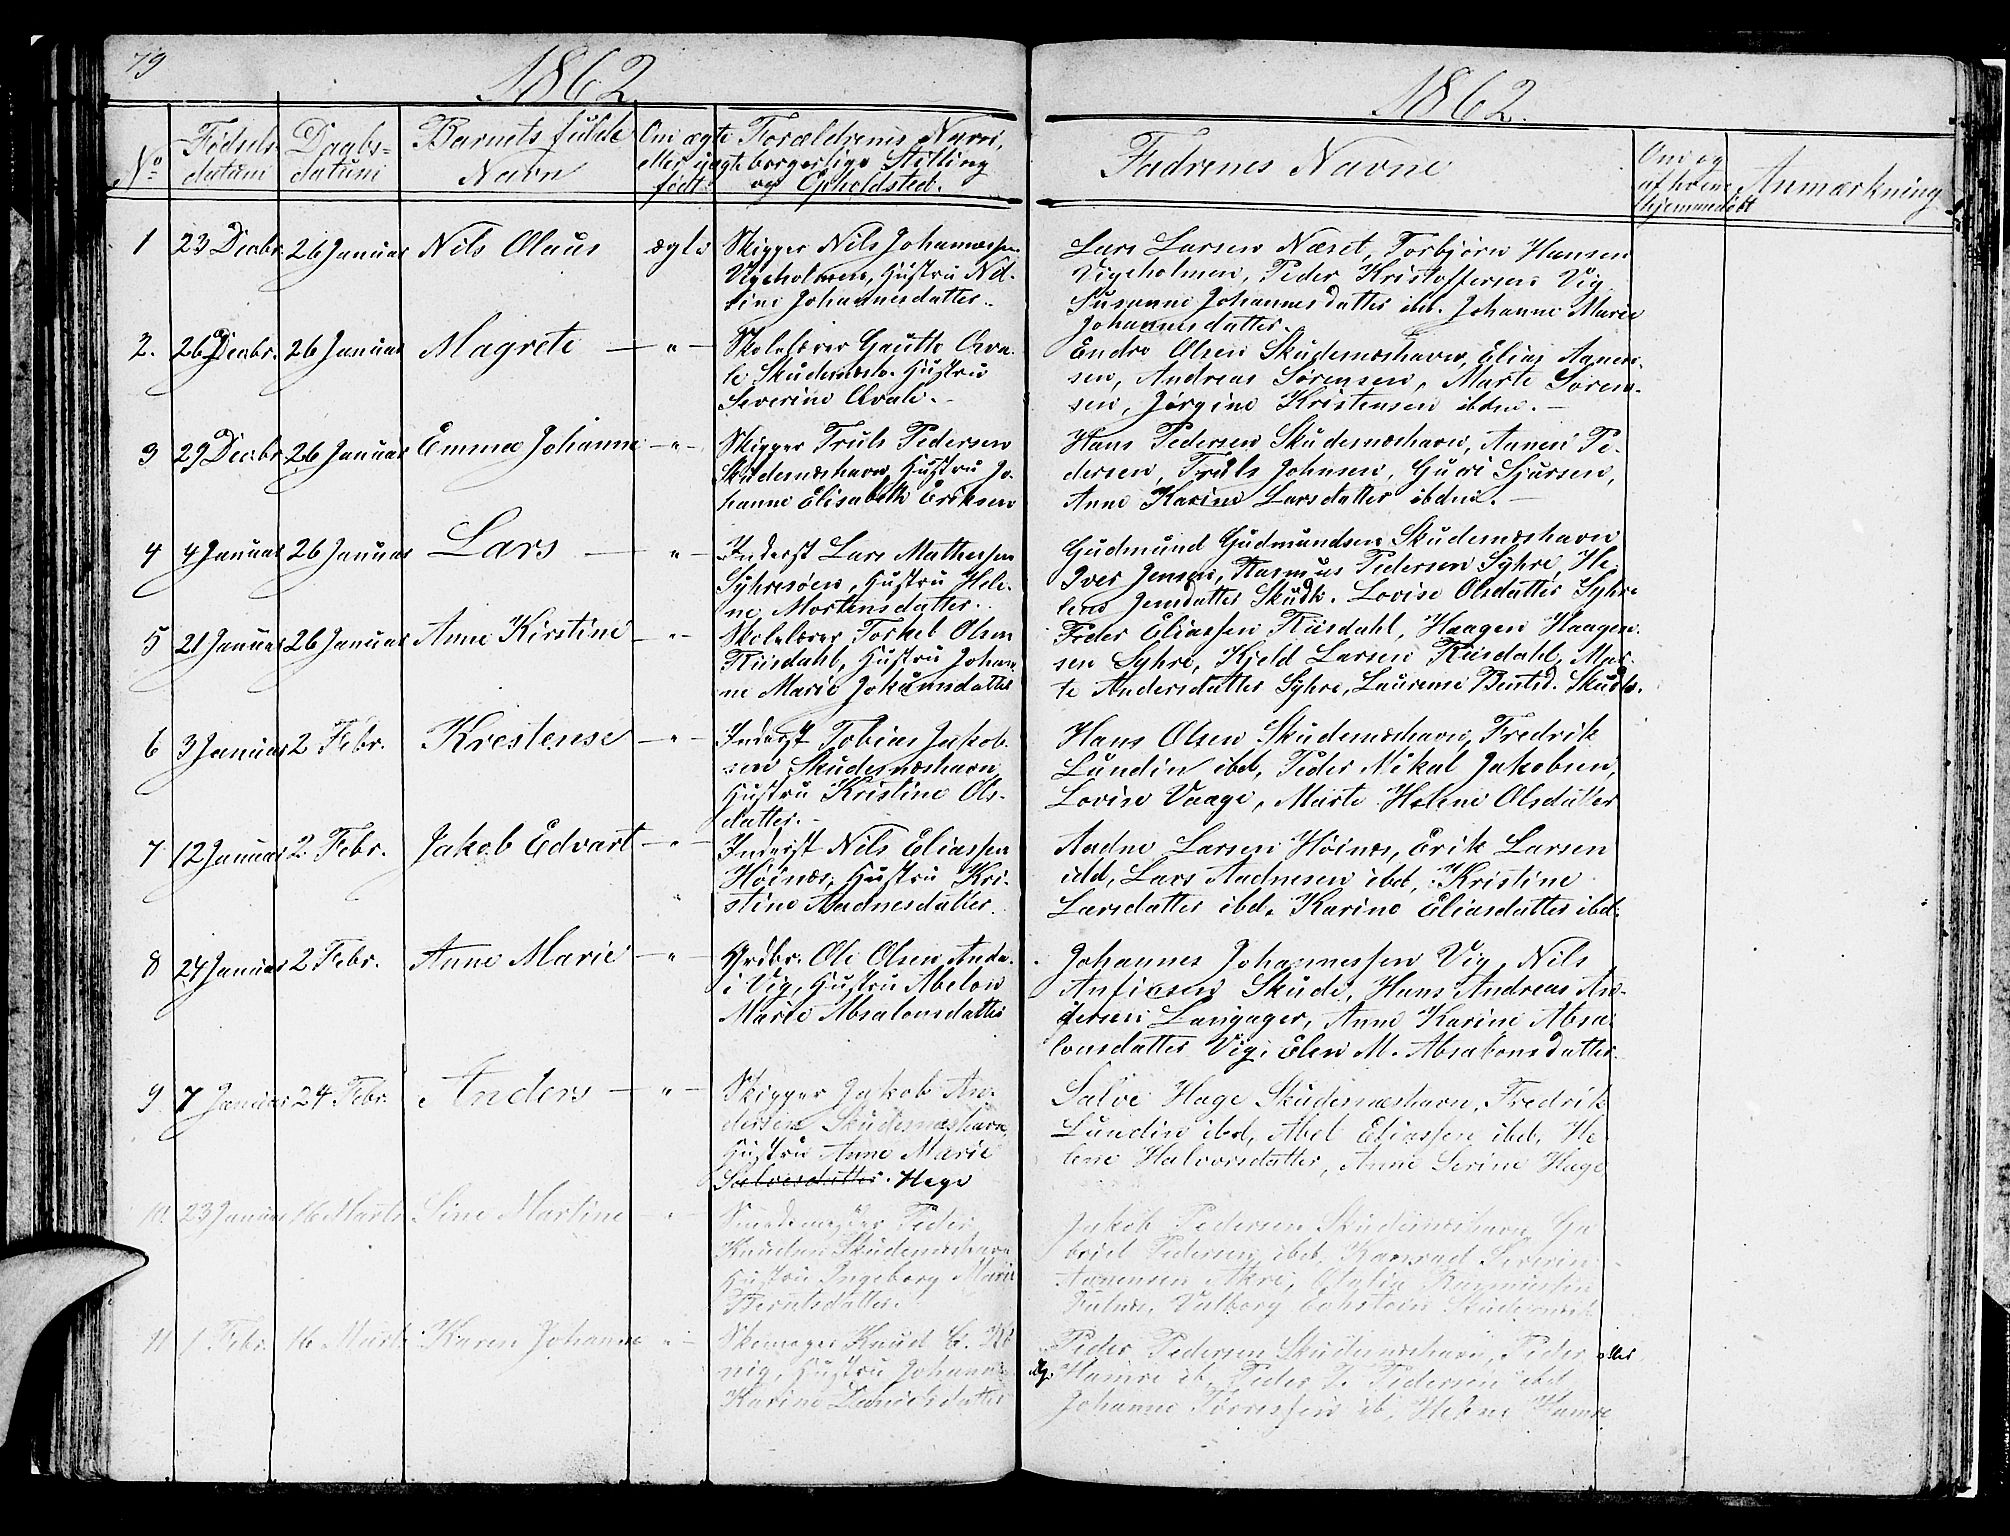 79
1862
1862.
No
Fødsels
datum
Daabs-
datum
Barnets fulde
Navn
Om ægte
eller uægte
født.
Forældrenes Navn,
borgerlige Stilling
og Opholdsted.
Fadrenes Navne
Om og
af hvem
hjemmedøbt
Anmærkning
1
23 Decbr.
26 Januar
Nils Olaus
ægte
Skipper Nils Johannessen
Vigeholmen, Hustru Nil-
sine Johannesdatter.
Lars Larsen Næset, Torbjørn Hansen
Vigeholmen, Peder Kristoffersen Vig
Susanne Johannesdatter ibd. Johanne Marie
Johannesdatter.
2.
26 Decbr.
26 Januar
Magrete
— " —
Skolelærer Gautte Qva-
le Skudesnæsh. Hustru
Severine Qvale.
Endre Olsen Skudesnæshavn, Elias Aanen-
sen, Andreas Sørensen, Marte Søren-
sen, Jørgine Kristensen ibdm. —
3
29 Decbr.
26 Januar
Emma Johanne
— " —
Skipper Truls Pedersen
Skudesnæshavn, Hustru Jo-
hanne Elisabeth Eriksen
Hans Pedersen Skudesnæshavn, Aanen Pe-
dersen, Truls Johnsen, Guri Sjursen,
Anne Karine Larsdatter ibdm. —
4
4 Januar
26 Januar
Lars
— " —
Inderst Lars Mathessen
Syhresøen, Hustru Hele-
ne Mortensdatter.
Gudmund Gudmundsen Skudesnæshavn
Iver Jensen, Rasmus Pedersen Syhre, He-
lene Jensdatter Skudh. Lovise Olsdatter Syhre
5
21 Januar
26 Januar
Anne Kirstine
— " —
Skolelærer Torkel Olsen
Risdahl, Hustru Johan-
ne Marie Jokumsdatter
Peder Eliassen Risdahl, Haagen Haagen-
sen Syhre, Kjeld Larsen Risdahl, Mar-
te Andersdatter Syhre, Laurense Bentsd. Skudes.
6
3 Januar
2 Febr.
Krestense
— " —
Inderst Tobias Jakob-
sen Skudesnæshavn
Hustru Kristine Ols-
datter. -
Hans Olsen Skudesnæshavn, Fredrik
Lundin ibd, Peder Nikal Jakobsen,
Lovise Vaage, Marte Helene Olsdatter
7
12 Januar
2 Febr.
Jakob Edvart
— " —
Inderst Nils Eliassen
Høinæs, Hustru Kri-
stine Aadnesdatter.
Aadne Larsen Høinæs, Erik Larsen
ibd, Lars Aadnesen ibd, Kristine
Larsdatter ibd. Karine Eliasdatter ibd.
8
24 Januar
2 Febr.
Anne Marie
— " —
Grdbr. Ole Olsen
i Vig, Hustru Abelon
Marie Absalonsdatter
Johannes Johannessen Vig, Nils
Skude, Hans Andreas An-
dersen Langager, Anne Karine Absa-
lonsdatter Vig, Elen M. Absalonsdatter.
9
7 Januar
24 Febr.
Anders
— " —
Skipper Jakob An-
dersen Skudesnæshavn,
Hustru Anne Marie
Salvesdatter. Hage
Salve Hage Skudesnæshavn, Fredrik
Lundin ibd, Abel Eliassen ibd, He-
lene Halvorsdatter, Anne Serine Hage
10.
23 Januar
16 Marts
Sine Martine
"
Smedemester Peder
Knudsen Skudesnæshavn
Hustru Ingeborg Marie
Berntsdatter.
Jakob Pedersen Skudesnæshavn, Ga-
briel Pedersen ibd, Konrad Severin
Aanensen Akre, Otalia Rasmussen
Falnæs, Valborg Skudesnæsh.
11
1 Febr.
16 Marts
Karen Johanne
" —
Skomager Knud
Hustru Johanne
Karine Davidsdatter
Peder Pedersen Skudesnæshavn, Peder
Hamre ib, Peder J. Pedersen ibd
Johanne Tørressen ib, Helene Hamre